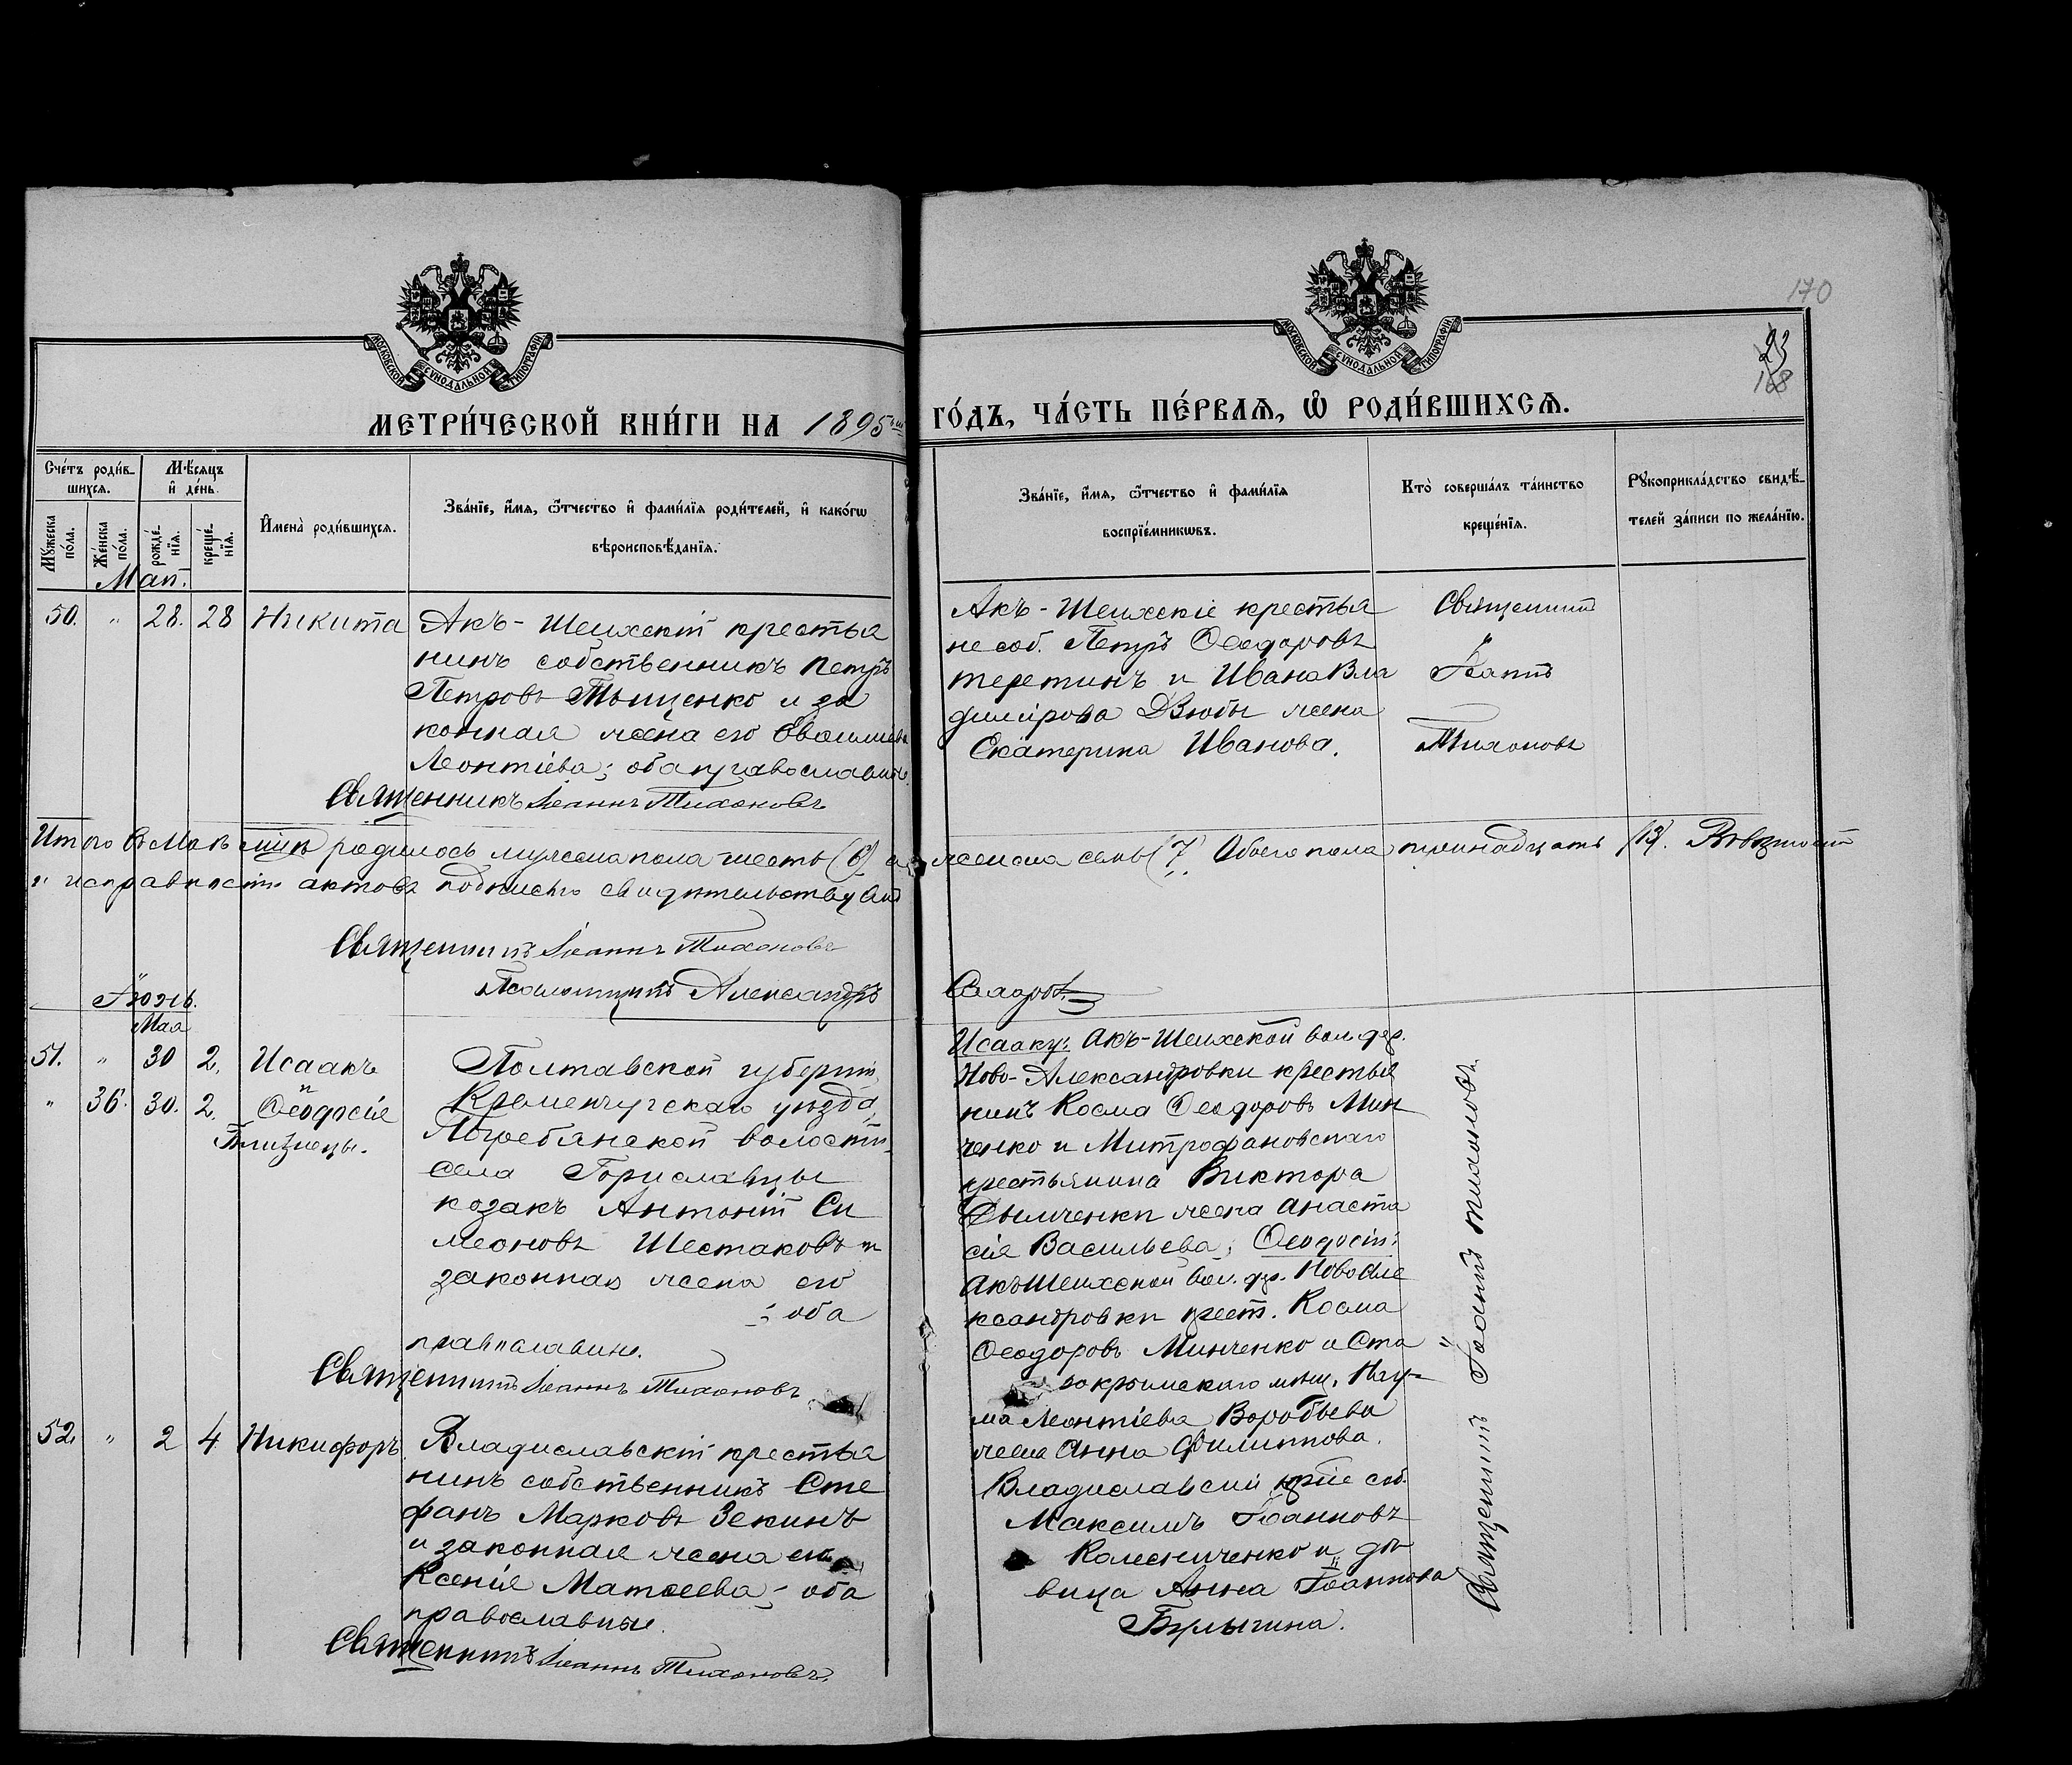 170
93
168
МОСКОВСКОЙ СѴНОДАЛЬНОЙ ТИПОГРАФІИ
МОСКОВСКОЙ СѴНОДАЛЬНОЙ ТИПОГРАФІИ
МЕТРИ́ЧЕСКОЙ КНИ́ГИ НА 1895 ГО́ДЪ, ЧА́СТЬ ПЕ́РВАѦ, Ѡ҆ РОДИ́ВШИХСѦ.
Сче́тъ роди́в-
шихсѧ.
Мѣ́сѧцъ
и҆ де́нь.
Мꙋжеска по́ла.
Же́нска по́ла.
рожде́нїѧ.
креще́нїѧ.
И҆мена̀ роди́вшихсѧ.
Зва́нїе, и҆́мѧ, ѻ҆́тчество и҆ фамѝлїѧ роди́телей, и҆ како́гѡ
вѣроисповѣ́данїѧ.
Зва́нїе, и҆́мѧ, ѻ҆́тчество и҆ фамѝлїѧ
воспрїе́мникѡвъ.
Кто̀ соверша́лъ та́инство
креще́нїѧ.
Рꙋкоприкла́дство свидѣ́-
телей за́писи по жела́нїю.
Май.
50. " 28. 28 Никита
Акъ-Шеихскій крестья
нинъ собственникъ Петръ
Петровъ Тыщенко и за
конная жена его
Леонтіева; оба православные
Священникъ Іоаннъ Тихоновъ
Акъ-Шеихскіе крестья
не соб. Петръ Ѳеодоровъ
Теретинъ и Ивана Вла
димірова Дзюбы жена
Екатерина Иванова.
Священникъ
Іоаннъ
Тихоновъ
Итого въ Маѣ мцѣ родилось мужеска пола шесть (6) а женска семь (7) Обоего пола тринадцать (13).
и исправности актовъ подписью свидѣтельствуемъ
Священникъ Іоаннъ Тихоновъ
Псаломщикъ Александръ
Іюнь.
Мая
51. " 30 2. Исаакъ
и
" 36. 30. 2. Ѳеодосія
Близнецы.
Полтавской губерніи,
Кременчугскаго уѣзда,
Погребянской волости,
села Гориславцы
козакъ Антоній Си
меоновъ Шестаковъ и
законная жена его
; оба
православные.
Священникъ Іоаннъ Тихоновъ
Исааку: Акъ-Шеихской вол. дер.
Ново-Александровки крестья
нинъ Косма Ѳеодоровъ Мин
ченко и Митрофановскаго
крестьянина Виктора
жена Анаста
сія Васильева; Ѳеодосіи:
Акъ Шеихской вол. дер. Ново Але
ксандровки крест. Косма
Ѳеодоровъ Минченко и Ста
рокрымскаго мѣщ. Нау-
ма Леонтіева Воробьева
жена Анна Филиппова.
Священникъ Іоаннъ Тихоновъ.
52. " 2 4 Никифоръ
Владиславскій крестья
нинъ собственникъ Сте
фанъ Марковъ Зекинъ
и законная жена его
Ксенія Матѳеева; оба
православные.
Священникъ Іоаннъ Тихоновъ.
Владиславскій соб.
Максимъ Іоанновъ
Колесниченко и дѣ
вица Анна Іоаннова
Булыгина.